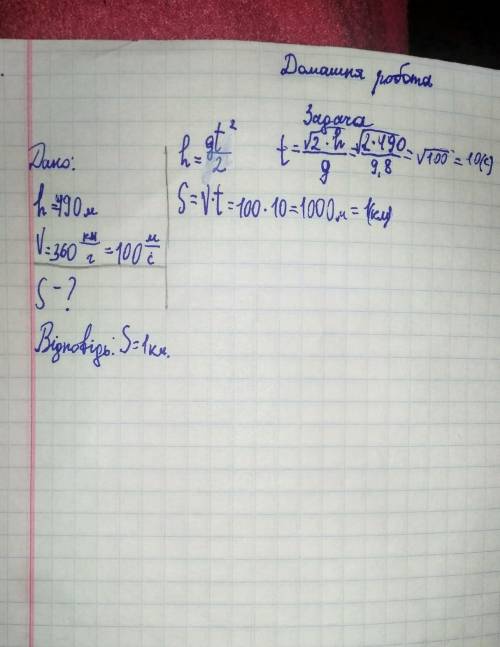 Домашня робота
Задача
Дано:
h=490м
V=360 км/г =100 м/с
S-?
h=gt²/2
t=√2·h/g=√2·490/9,8=√100=10(с)
S=V·t=100·10=1000м=1(км)
Відповідь: S=1км.